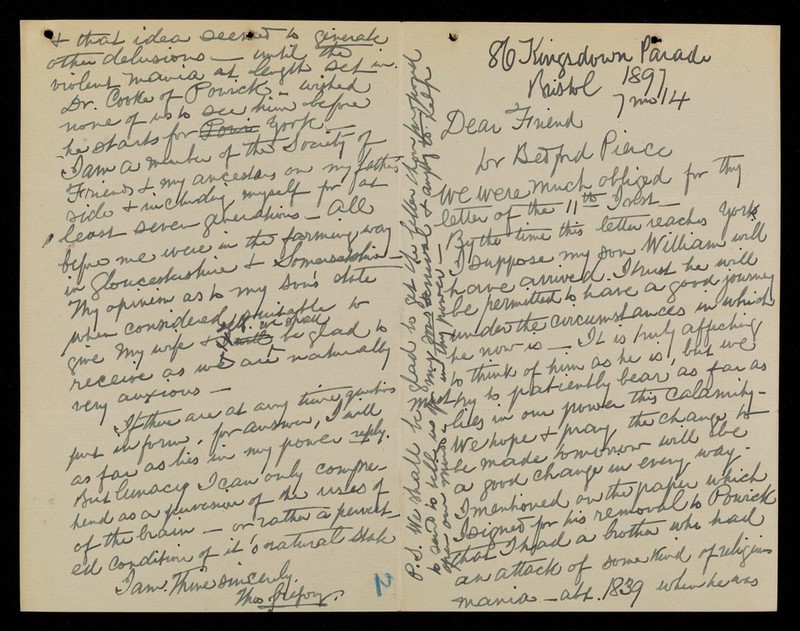 86 Kingsdown Parade
Bristol 1897
7 mo 14
Dear Friend
Dr Bedford Pierce
We were much obliged for thy
letter of the 11th Inst –
By the time this letter reaches York
I suppose my son William will
have arrived. I trust he will
be permitted to have a good journey
under the circumstances in which
he now is – It is truly affecting
to think of him as he is, but we
must try to patiently bear as far as
lies in our power this calamity –
We hope & pray, the change to
be made tomorrow will be
a good change in every way –
I mentioned on the paper which
I signed for his removal to Powick
that I had a brother who had
an attack of some kind of religious
mania – abt. 1839 when he was
& that idea seemed to generate
other delusions – until the
violent mania at length set in.
Dr. Cooke of Powick – wished
none of us to see him before
he starts for York –
I am a member of the Society of
Friends & my ancestors on my father's
side & including myself for at
least seven generations – All
before me were in the farming way
in Gloucestershire & Somersetshire
My opinion as to my son's state
when considered suitable to
give my wife & self we shall be glad to
receive as we are naturally
very anxious –
If there are at any time questions
put in form, for answer, I will
as far as lies in my power reply.
But lunacy I can only compre-
hend as a perversion of the uses of
of the brain – or rather a pervert-
ed condition of it's natural state
I am. Thine sincerely.
Thos
2
P.S. We shall be glad to get the letter
to send to tell us of my son's arrival & anxity to help